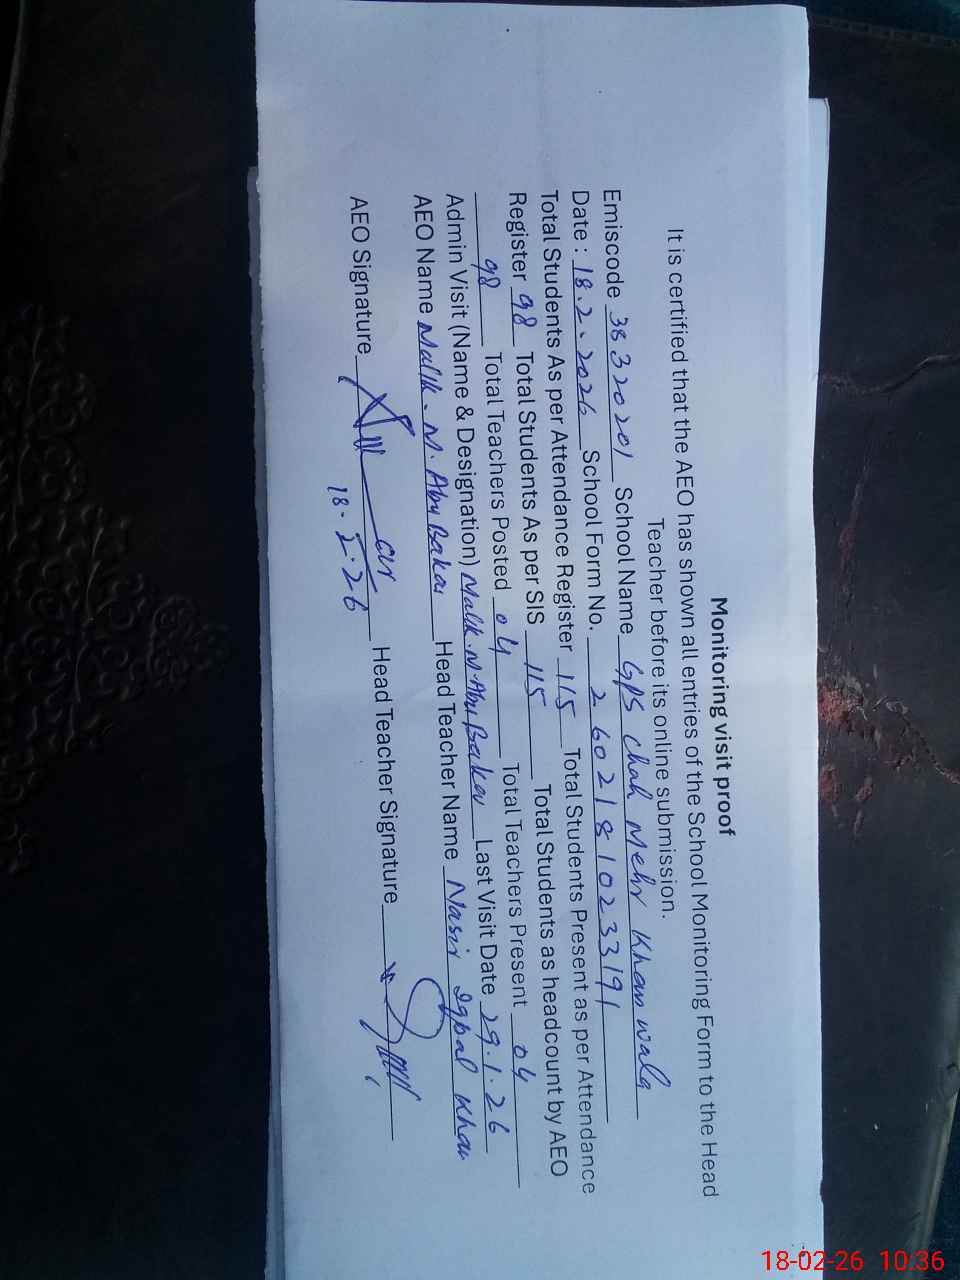 Monitoring visit proof
It is certified that the AEO has shown all entries of the School Monitoring Form to the Head
Teacher before its online submission.
Emiscode 38320201 School Name GPS Chah Mehr Khan wala
Date : 18.2.2026 School Form No. 26021810233191
Total Students As per Attendance Register 115 Total Students Present as per Attendance
Register 98 Total Students As per SIS 115 Total Students as headcount by AEO
98 Total Teachers Posted 04 Total Teachers Present 04
Admin Visit (Name & Designation) Malik.M.Abu Bakar Last Visit Date 29.1.26
AEO Name Malik.M.Abu Bakar Head Teacher Name Nasir Iqbal Khan
AEO Signature Head Teacher Signature
18.2.26
18-02-26 10:36